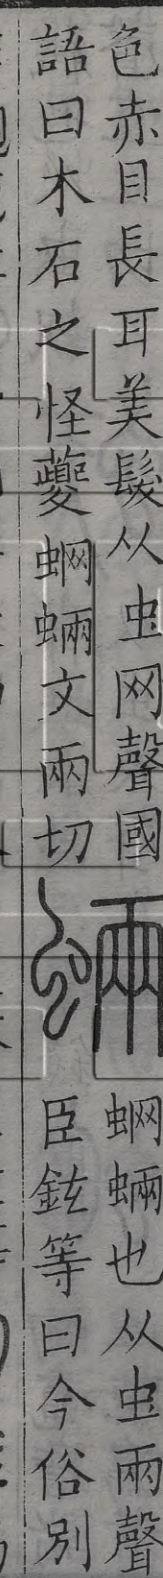 色赤目長耳美髮从虫网聲國
語曰木石之怪夔蝄蜽文兩切
蜽
蝄蜽也从虫兩聲
臣鉉等曰今俗別